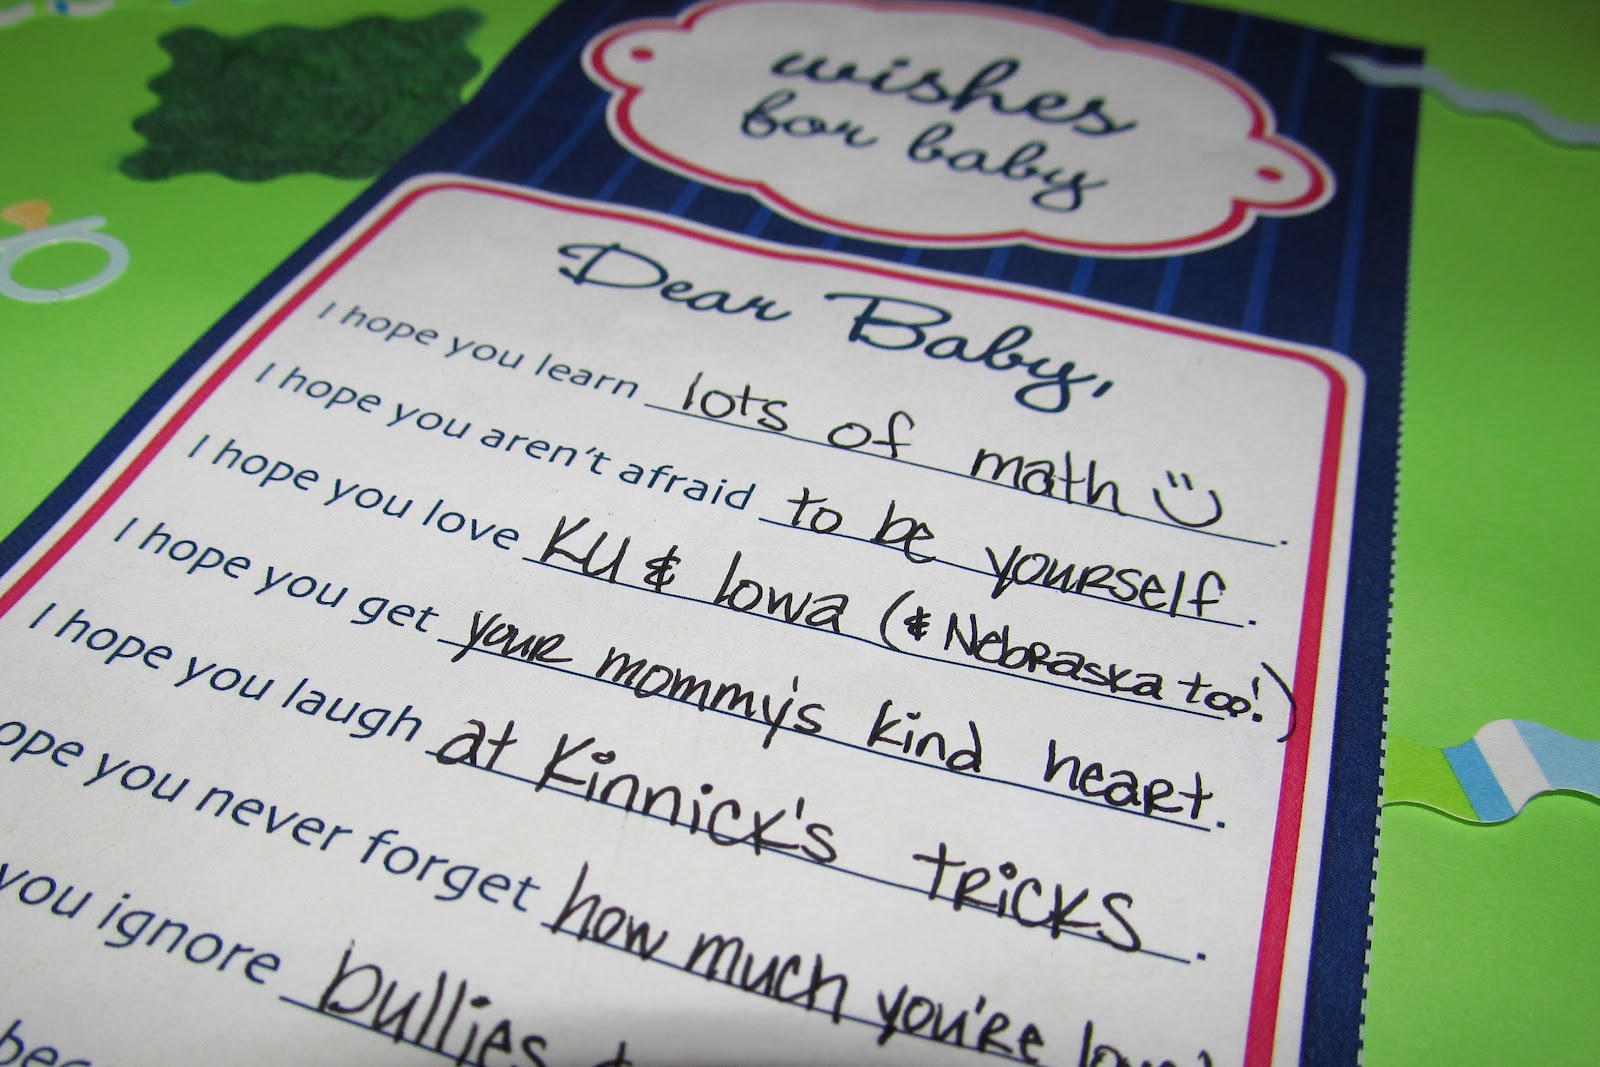 wishes
for baby
Dear Baby,
I hope you learn lots of math
I hope you aren't afraid to be yourself.
I hope you love KU & Iowa (& Nebraska too!)
I hope you get your mommy's kind heart.
I hope you laugh at Kinnick's tricks.
ope you never forget how much you're
you ignore bullies
bec